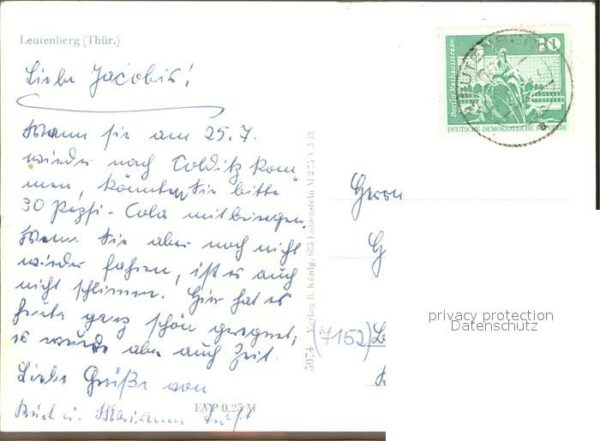 Leutenberg (Thür.)
Liebe Jacobis!
Wenn sie am 25.7.
wieder nach Colditz kom-
men, könnten Sie bitte
30 Pepsi-Cola mitbringen.
Wenn Sie aber noch nicht
wieder fahren, ist es auch
nicht schlimm. Hier hat es
heute ganz schön geregnet,
es wurde aber auch Zeit.
Liebe Grüße von
u. Marianne
EVP 0,25 M
Verlag R. König, 685 Lobenstein
Berlin-Rathausstraße
10
DEUTSCHE DEMOKRATISCHE REPUBLIK
Herrn
G
(7152)
privacy protection
Datenschutz